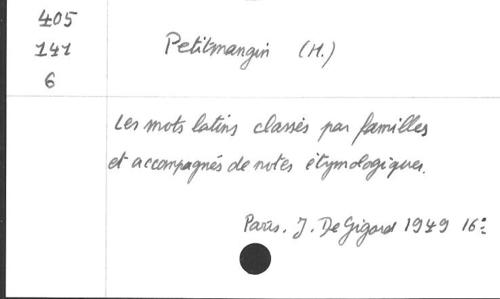 405
141
6
Petitmangin (H.)
Les mots latins classés par familles
et accompagnés de notes étymologiques.
Paris. J. De Gigord 1949 16º